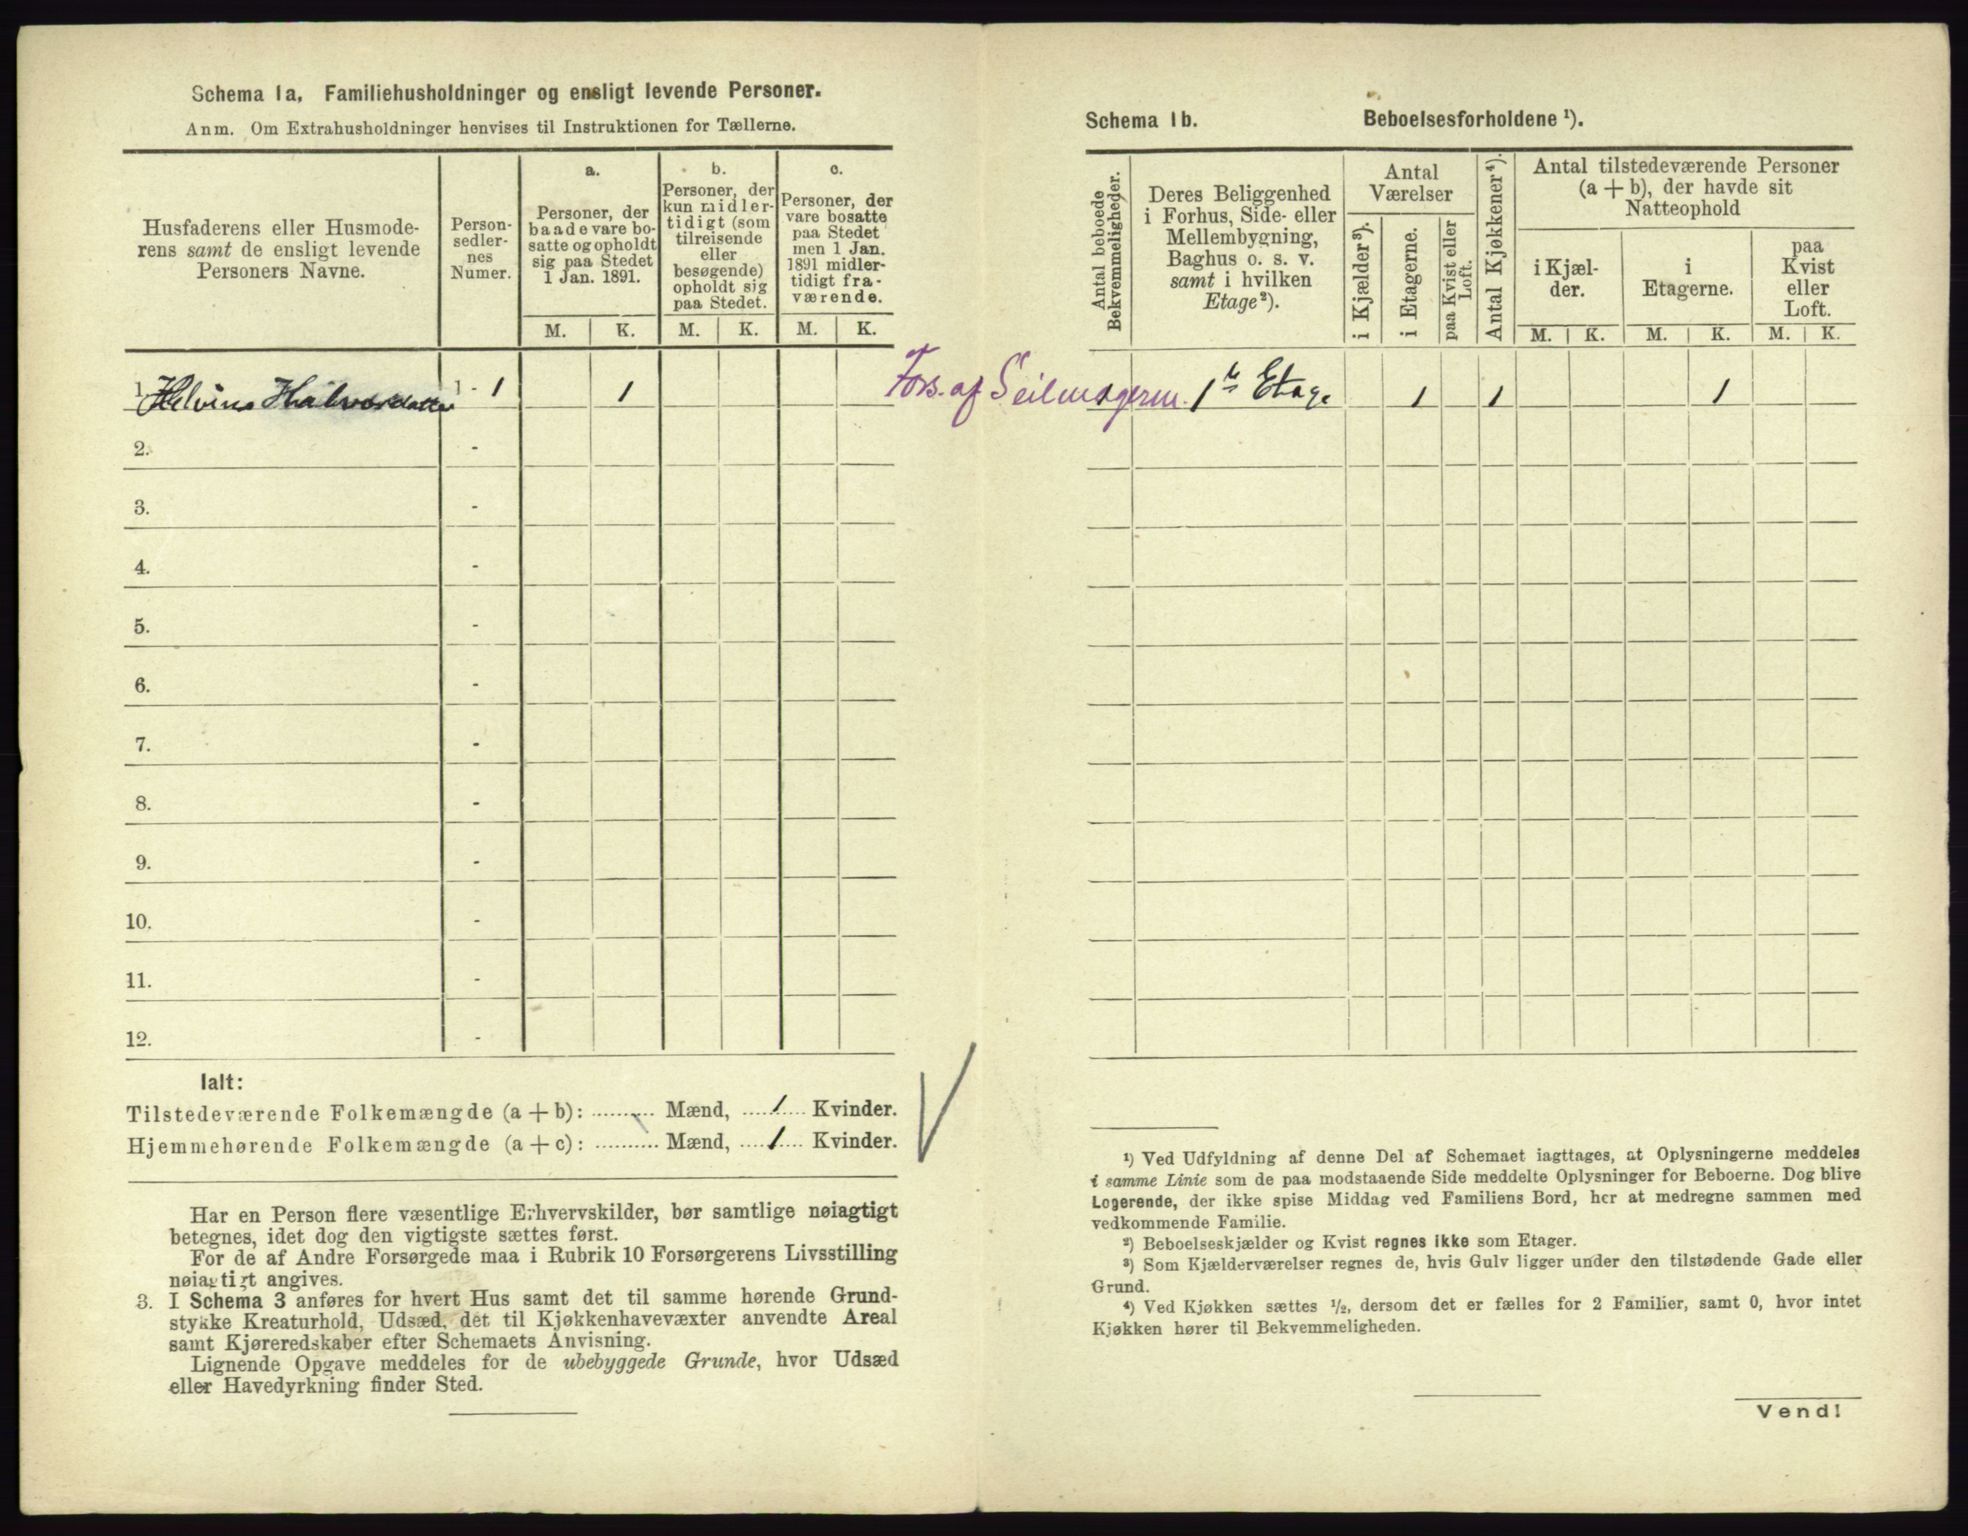 Schema 1a. Familiehusholdninger og ensligt levende Personer.
Anm. Om Extrahusholdninger henvises til Instruktionen for Tællerne.
Husfaderens eller Husmode-
rens samt de ensligt levende
Personers Navne.
Person-
sedler-
nes
Numer.
a.
Personer, der
baade vare bo-
satte og opholdt
sig paa Stedet
1 Jan. 1891.
b.
Personer, der
kun midler-
tidigt (som
tilreisende
eller
besøgende)
opholdt sig
paa Stedet.
c.
Personer, der
vare bosatte
paa Stedet
men 1 Jan.
1891 midler-
tidigt fra-
værende.
M. K. M. K. M. K.
1. Helvine Halvorsdatter 1 - 1 1
2. -
3. -
4. -
5. -
6. -
7. -
8. -
9. -
10. -
11. -
12. -
Ialt:
Tilstedeværende Folkemængde (a + b): ........... Mænd, ....1.... Kvinder.
Hjemmehørende Folkemængde (a + c): ........... Mænd, ....1.... Kvinder.
Har en Person flere væsentlige Erhvervskilder, bør samtlige nøiagtigt
betegnes, idet dog den vigtigste sættes først.
For de af Andre Forsørgede maa i Rubrik 10 Forsørgerens Livsstilling
nøiagtigt angives.
3. I Schema 3 anføres for hvert Hus samt det til samme hørende Grund-
stykke Kreaturhold, Udsæd, det til Kjøkkenhavevæxter anvendte Areal
samt Kjøreredskaber efter Schemaets Anvisning.
Lignende Opgave meddeles for de ubebyggede Grunde, hvor Udsæd
eller Havedyrkning finder Sted.
Schema 1b. Beboelsesforholdene ¹).
Antal beboede
Bekvemmeligheder.
Deres Beliggenhed
i Forhus, Side- eller
Mellembygning,
Baghus o. s. v.
samt i hvilken
Etage²).
Antal
Værelser
i Kjælder³).
i Etagerne.
paa Kvist eller
Loft.
Antal Kjøkkener⁴).
Antal tilstedeværende Personer
(a + b), der havde sit
Natteophold
i Kjæl-
der.
i
Etagerne.
paa
Kvist
eller
Loft.
M. K. M. K. M. K.
Fors. af Seilmagerm. 1ste Etage 1 1 1
¹) Ved Udfyldning af denne Del af Schemaet iagttages, at Oplysningerne meddeles
i samme Linie som de paa modstaaende Side meddelte Oplysninger for Beboerne. Dog blive
Logerende, der ikke spise Middag ved Familiens Bord, her at medregne sammen med
vedkommende Familie.
²) Beboelseskjælder og Kvist regnes ikke som Etager.
³) Som Kjælderværelser regnes de, hvis Gulv ligger under den tilstødende Gade eller
Grund.
⁴) Ved Kjøkken sættes ½, dersom det er fælles for 2 Familier, samt 0, hvor intet
Kjøkken hører til Bekvemmeligheden.
Vend!